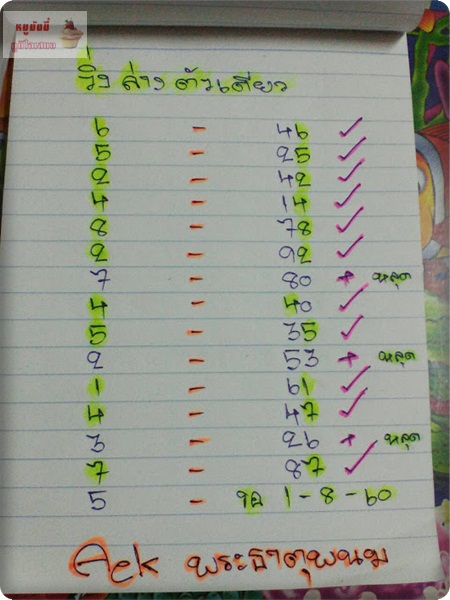 หมูบังขี่
วิ่ง ล่าง ตัวเดียว
6 - 46 ✓
5 - 25 ✓
2 - 42 ✓
4 - 14 ✓
8 - 78 ✓
2 - 92 ✓
7 - 80 + หลุด
4 - 40 ✓
5 - 35 ✓
2 - 53 + หลุด
1 - 61 ✓
4 - 47 ✓
3 - 26 + หลุด
7 - 87 ✓
5 - งวด 1-8-60
Aek พระธาตุพนม